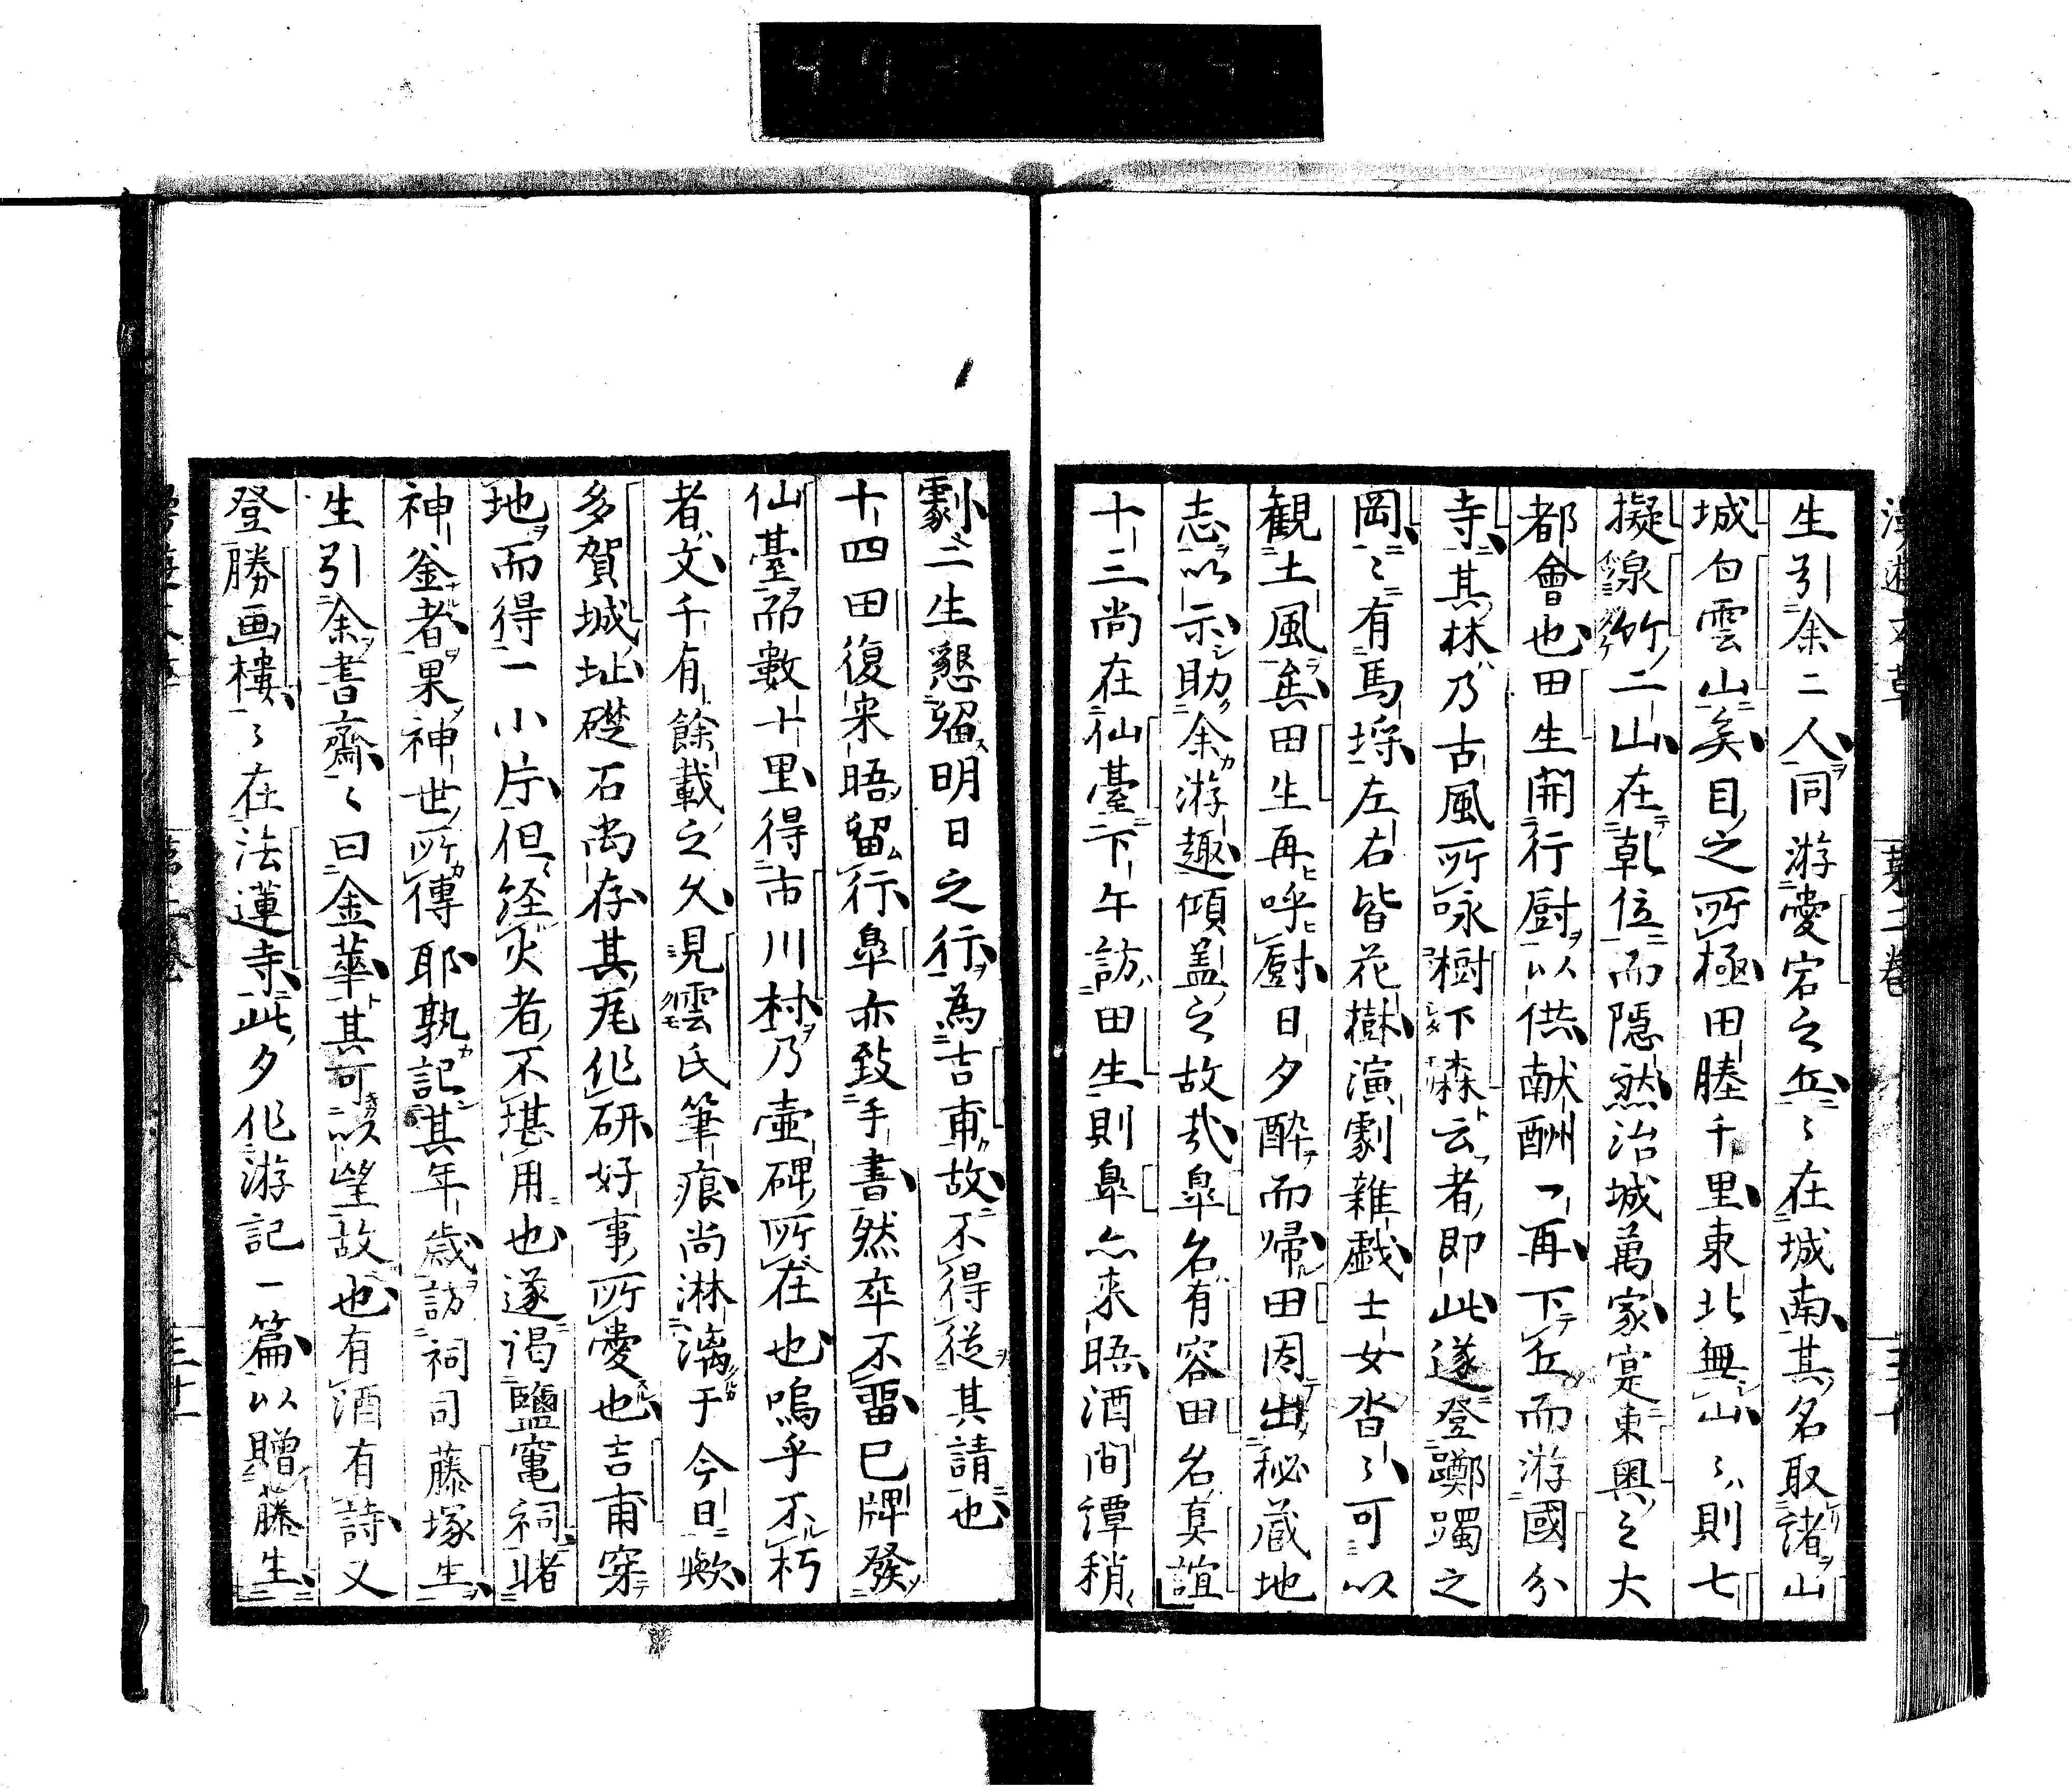 生引余二人同游愛宕之丘ゝ在城南其名取諸山
城白雲山矣目之所極田塍千里東北無山ゝ則七
擬泉竹二山在乹位而隠然治城萬家寔東奥之大
都會也田生開行厨以供献酬一再下丘而游國分
寺其林乃古風所咏樹下森云者即此遂登躑躅之
岡ゝ有馬埒左右皆花樹演劇雜戯士女沓ゝ可以
観土風矣田生再呼厨日夕酔而帰田因出秘蔵地
志以示助余游趣傾盖之故哉皐名有容田名真誼
十三尚在仙臺下午訪田生則皐亦来晤酒間譚稍
劇二生懇留明日之行為吉甫故不得従其請也
十四田復来晤留行皐亦致手書然卒不畱已牌發
仙臺而數十里得市川村乃壷碑所在也嗚乎不朽
者文千有餘載之久見雲氏筆痕尚淋漓于今日歟
多賀城址礎石尚存其瓦作研好事所愛也吉甫穿
地而得一小片但経灾者不堪用也遂謁鹽竃祠睹
神釡者果神世所傳耶孰記其年歳訪祠司藤塚生
生引余書齋ゝ曰金華其可以望故也有酒有詩又
登勝画樓ゝ在法蓮寺此夕作游記一篇以贈藤生